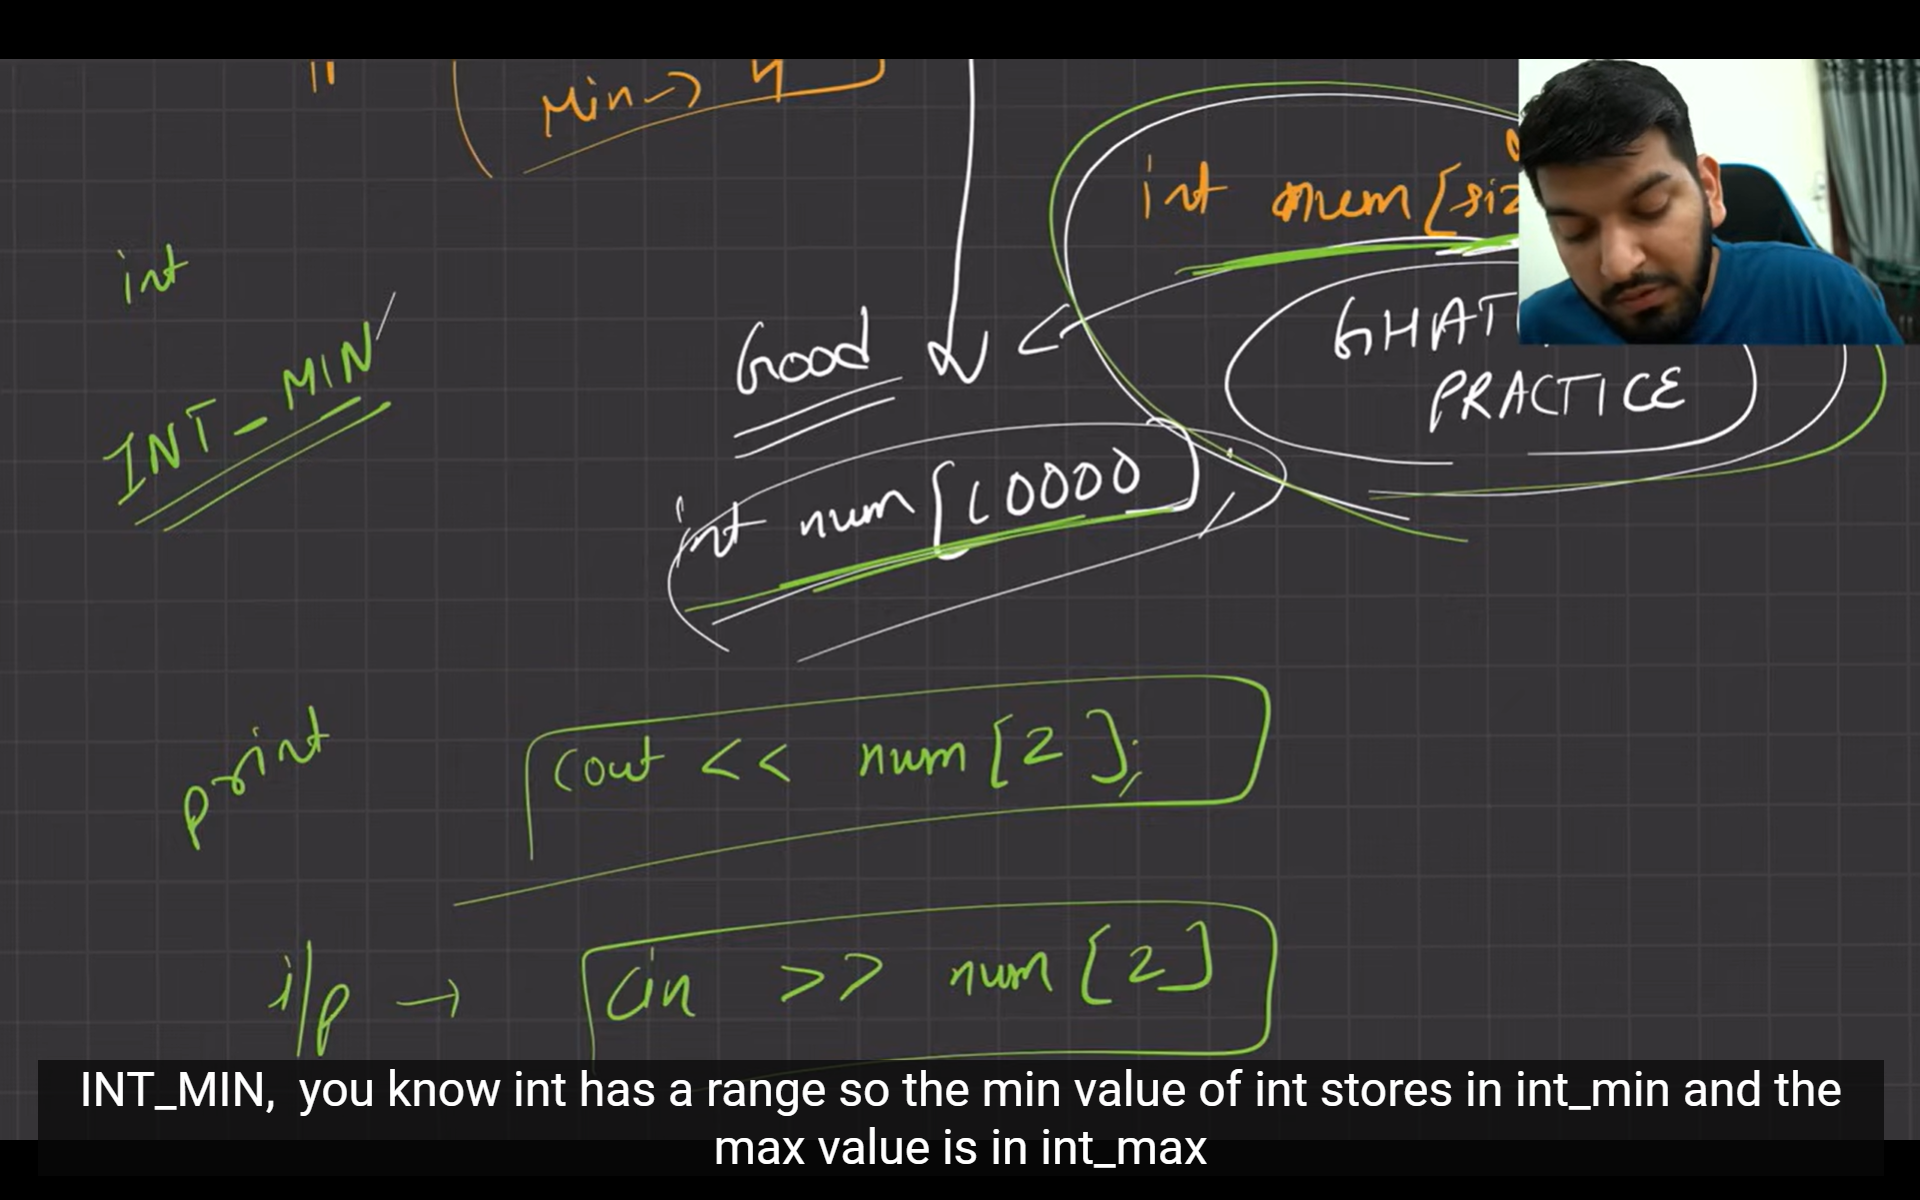 Min → 4
int num [siz
int
GHAT
INT_MIN
Good
PRACTICE
int num [10000]
print
cout << num [2];
i/p → cin >> num [2]
INT_MIN, you know int has a range so the min value of int stores in int_min and the
max value is in int_max